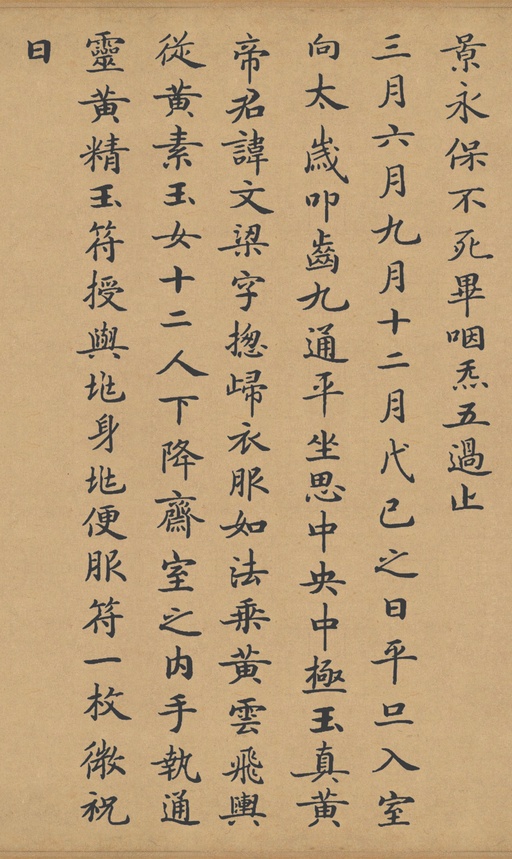 景永保不死畢咽炁五過止
三月六月九月十二月戊己之日平旦入室
向太歲叩齒九通平坐思中央中極玉真黄
帝君諱文梁字揔歸衣服如法乗黄雲飛輿
従黄素玉女十二人下降齋室之内手執通
靈黄精玉符授與兆身兆便服符一枚微祝
曰